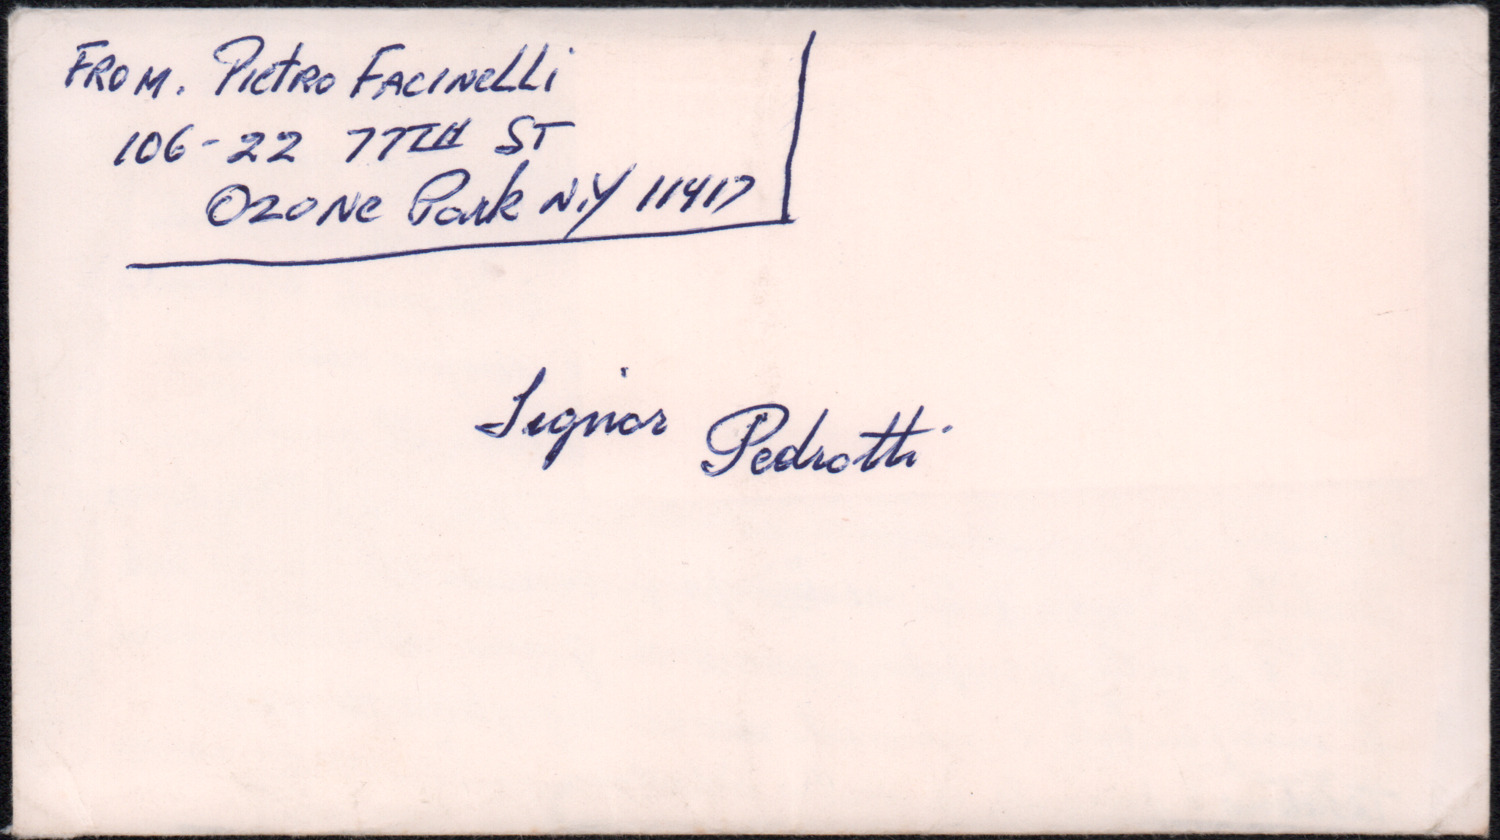 FROM. Pietro Facinelli
106-22 77TH ST
Ozone Park N.Y 11417
Signor Pedrotti